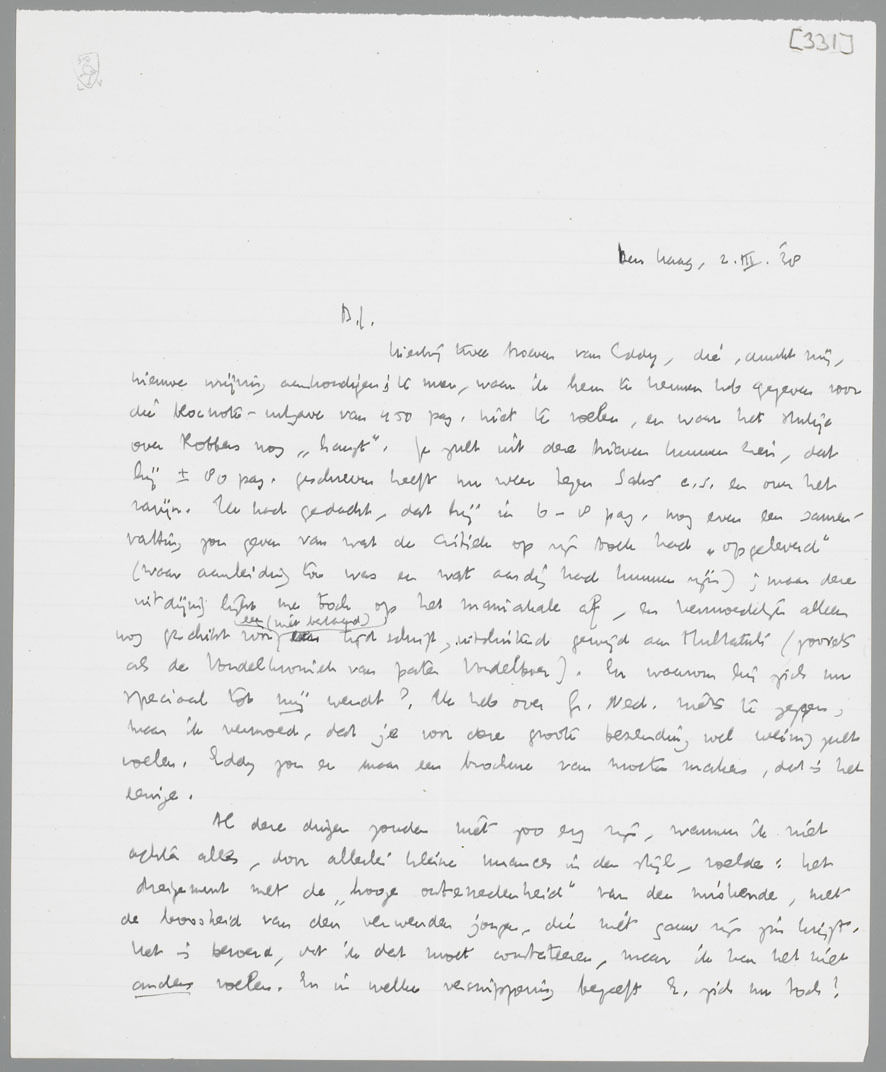 [331]
Den Haag, 2.III.'38
B.J.
Hierbij twee brieven van Eddy, die, dunkt mij,
nieuwe wrijving aankondigen; t.w. men, waar ik hem te kennen heb gegeven voor
die blocnote-uitgave van 450 pag. niet te voelen, en waar het stukje
over Robbers nog „hangt". Je zult uit deze brieven kunnen zien, dat
hij ± 80 pag. geschreven heeft nu weer tegen Saks c.s. en over het
ravijn. Ik had gedacht, dat hij in 6-8 pag. nog even een samen-
vatting zou geven van wat de critiek op zijn boek had „opgeleverd"
(waar aanleiding toe was en wat aardig had kunnen zijn); maar deze
uitdijing lijkt me toch op het maniakale af, en vermoedelijk alleen
nog geschikt voor een (niet bestaand) tijdschrift, uitsluitend gewijd aan Multatuli (zooiets
als de Vondelkroniek van pater Molkenboer). En waarom hij zich nu
speciaal tot mij wendt? Ik heb over Gr. Ned. niets te zeggen,
maar ik vermoed, dat je voor deze groote bezending wel weinig zult
voelen. Eddy zou er maar een brochure van moeten maken, dat is het
eenige.
Al deze dingen zouden niet zoo erg zijn, wanneer ik niet
achter alles, door allerlei kleine nuances in den stijl, voelde: het
dreigement met de „hooge ontevredenheid" van den miskende, met
de boosheid van den verwenden jongen, die niet gauw zijn zin krijgt.
Het is beroerd, dat ik dat moet constateeren, maar ik kan het niet
anders voelen. En in welke versnippering begeeft E. zich nu toch!